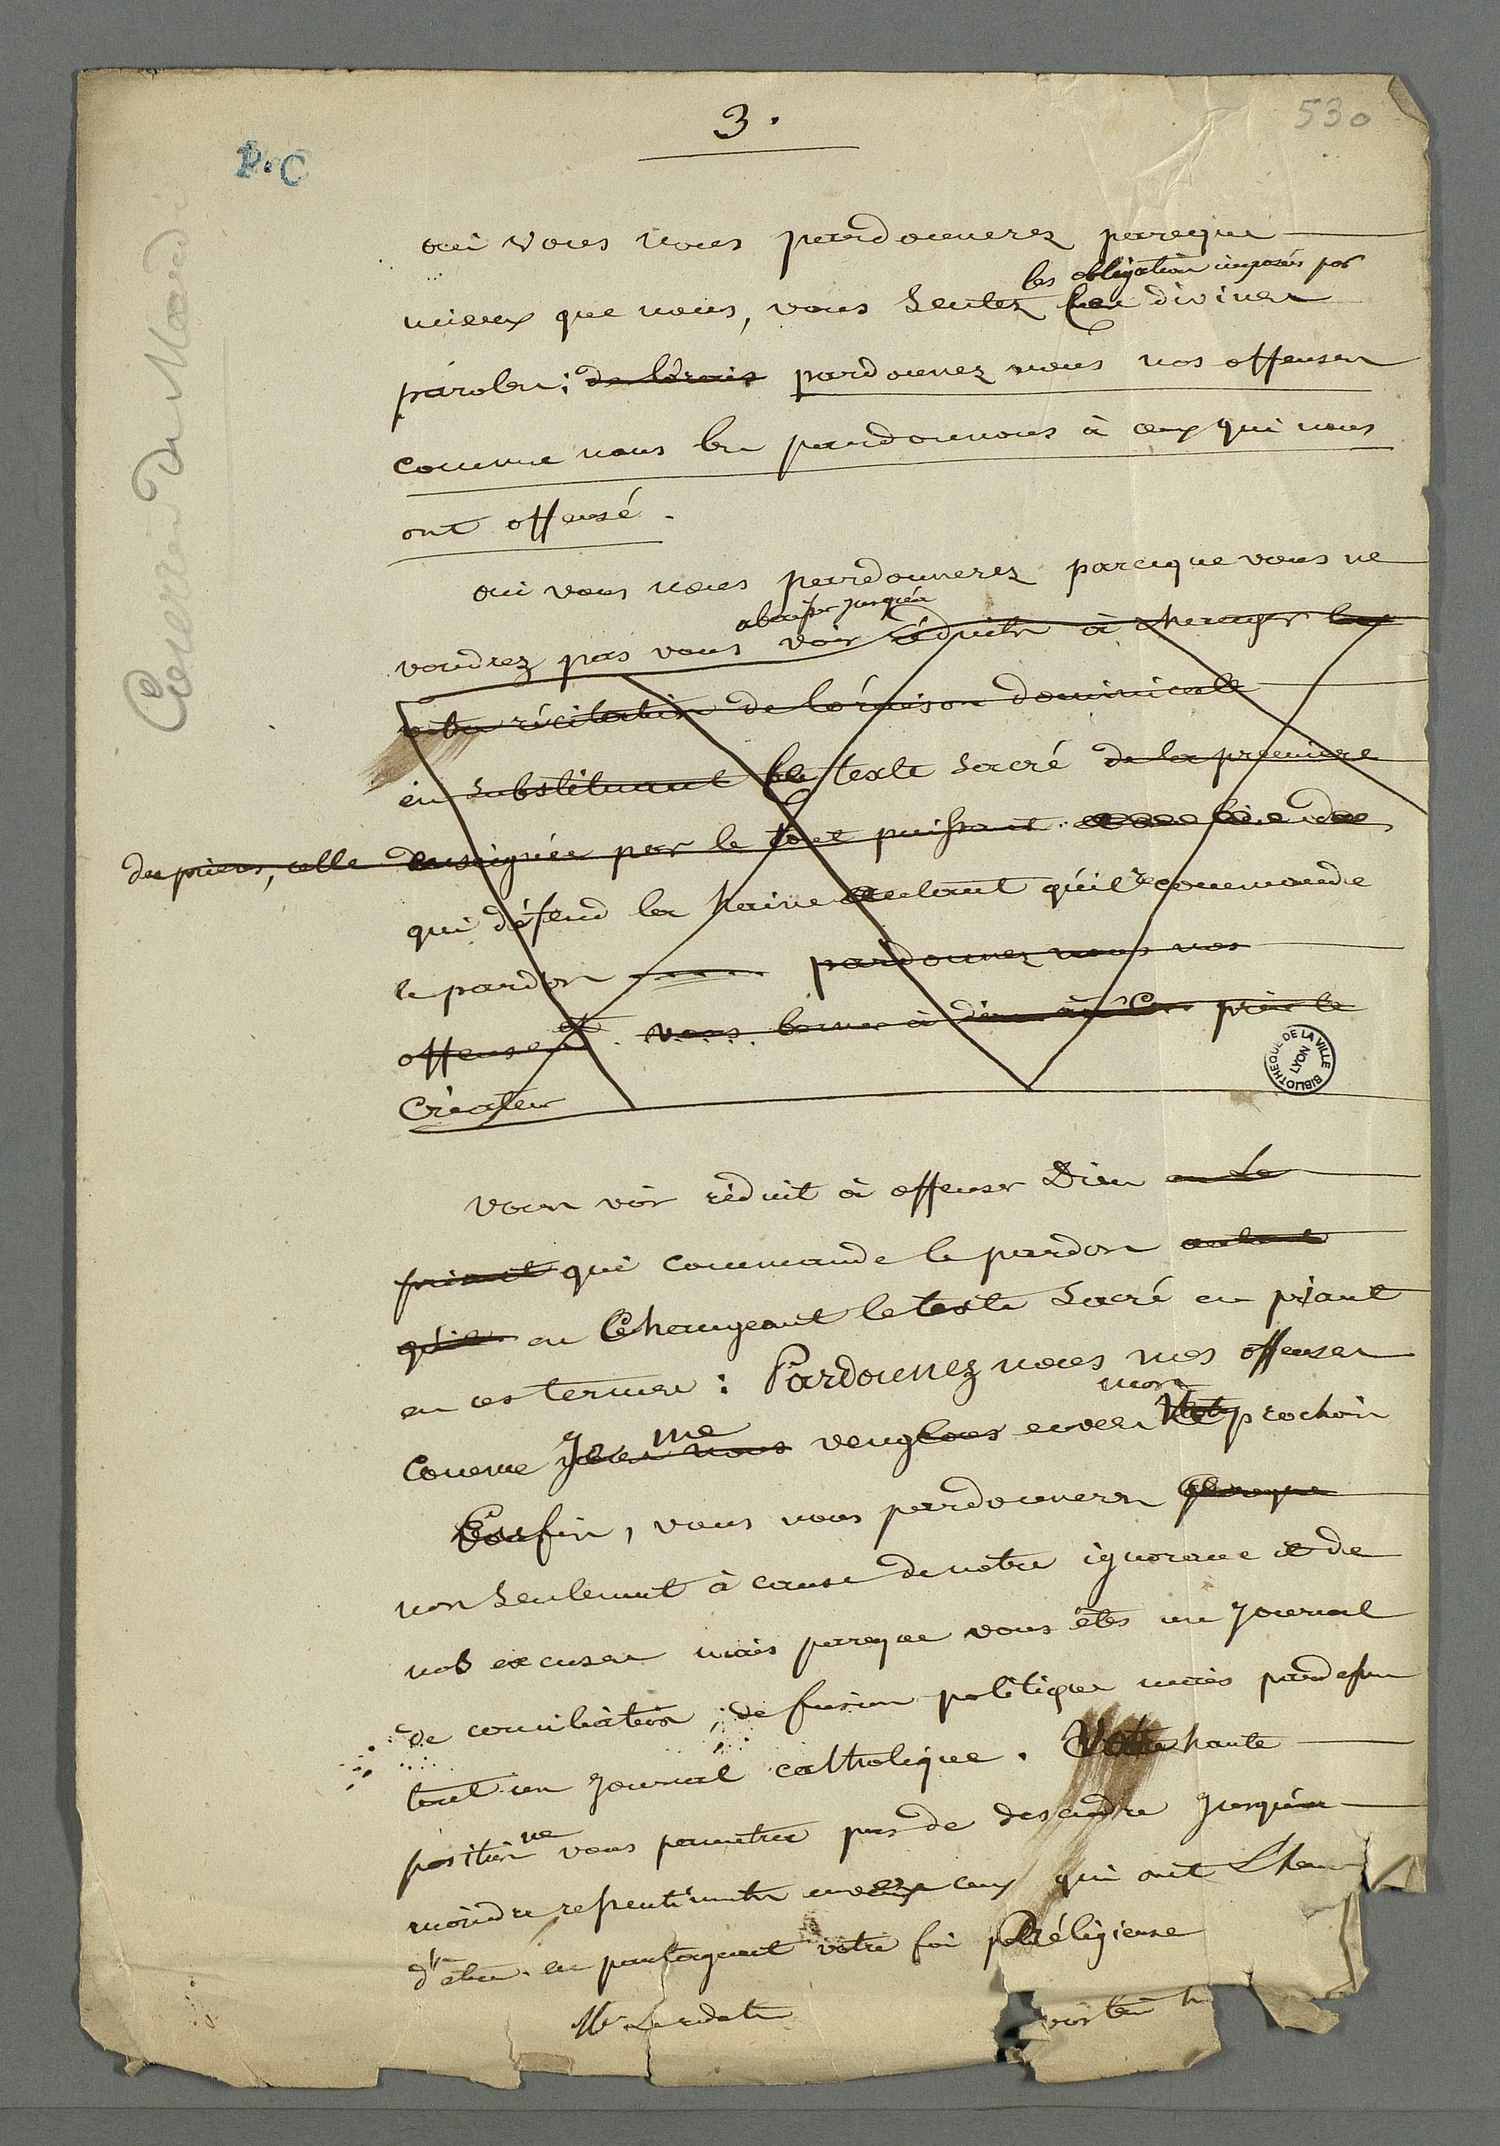 3.
530
P. C
Courrier du Mardi
oui vous nous pardonnerez parcque
les obligation imposées par
mieux que nous, vous sentez les divines
paroles: pardonnez nous nos offenses
comme nous les pardonnons à ceux qui nous
ont offensé.
oui vous nous pardonnerez parceque vous ne
abaisser jusqu'à
voudrez pas vous voir réduits à changer
votre récitation de l'oraison dominicale
en substituant le texte sacré de la premiere
des prieres, celle enseignée par le tout puissant.
qui défend la haine autant qu'il recommande
le pardon pardonnez nous nos
offenses
Créateur
BIBLIOTHEQUE DE LA VILLE
LYON
vous voir réduit à offenser Dieu en le
priant qui commande le pardon autant
qu'il en Changeant le texte sacré en priant
en ces termes: Pardonnez nous nos offenses
mon
me
comme Je nous vengeons envers prochain
Enfin, vous nous pardonnerez parceque
non seulement à cause de notre ignorance et de
nos excuses mais parceque vous êtes un journal
de conciliation, de fusion politique mais pardessus
tout un journal catholique. Votre haute
ne
position vous permettra pas de descendre jusqu'au
moindre ressentiment envers ceux qui ont L'hon
d'être en partageant votre foi Réligieuse